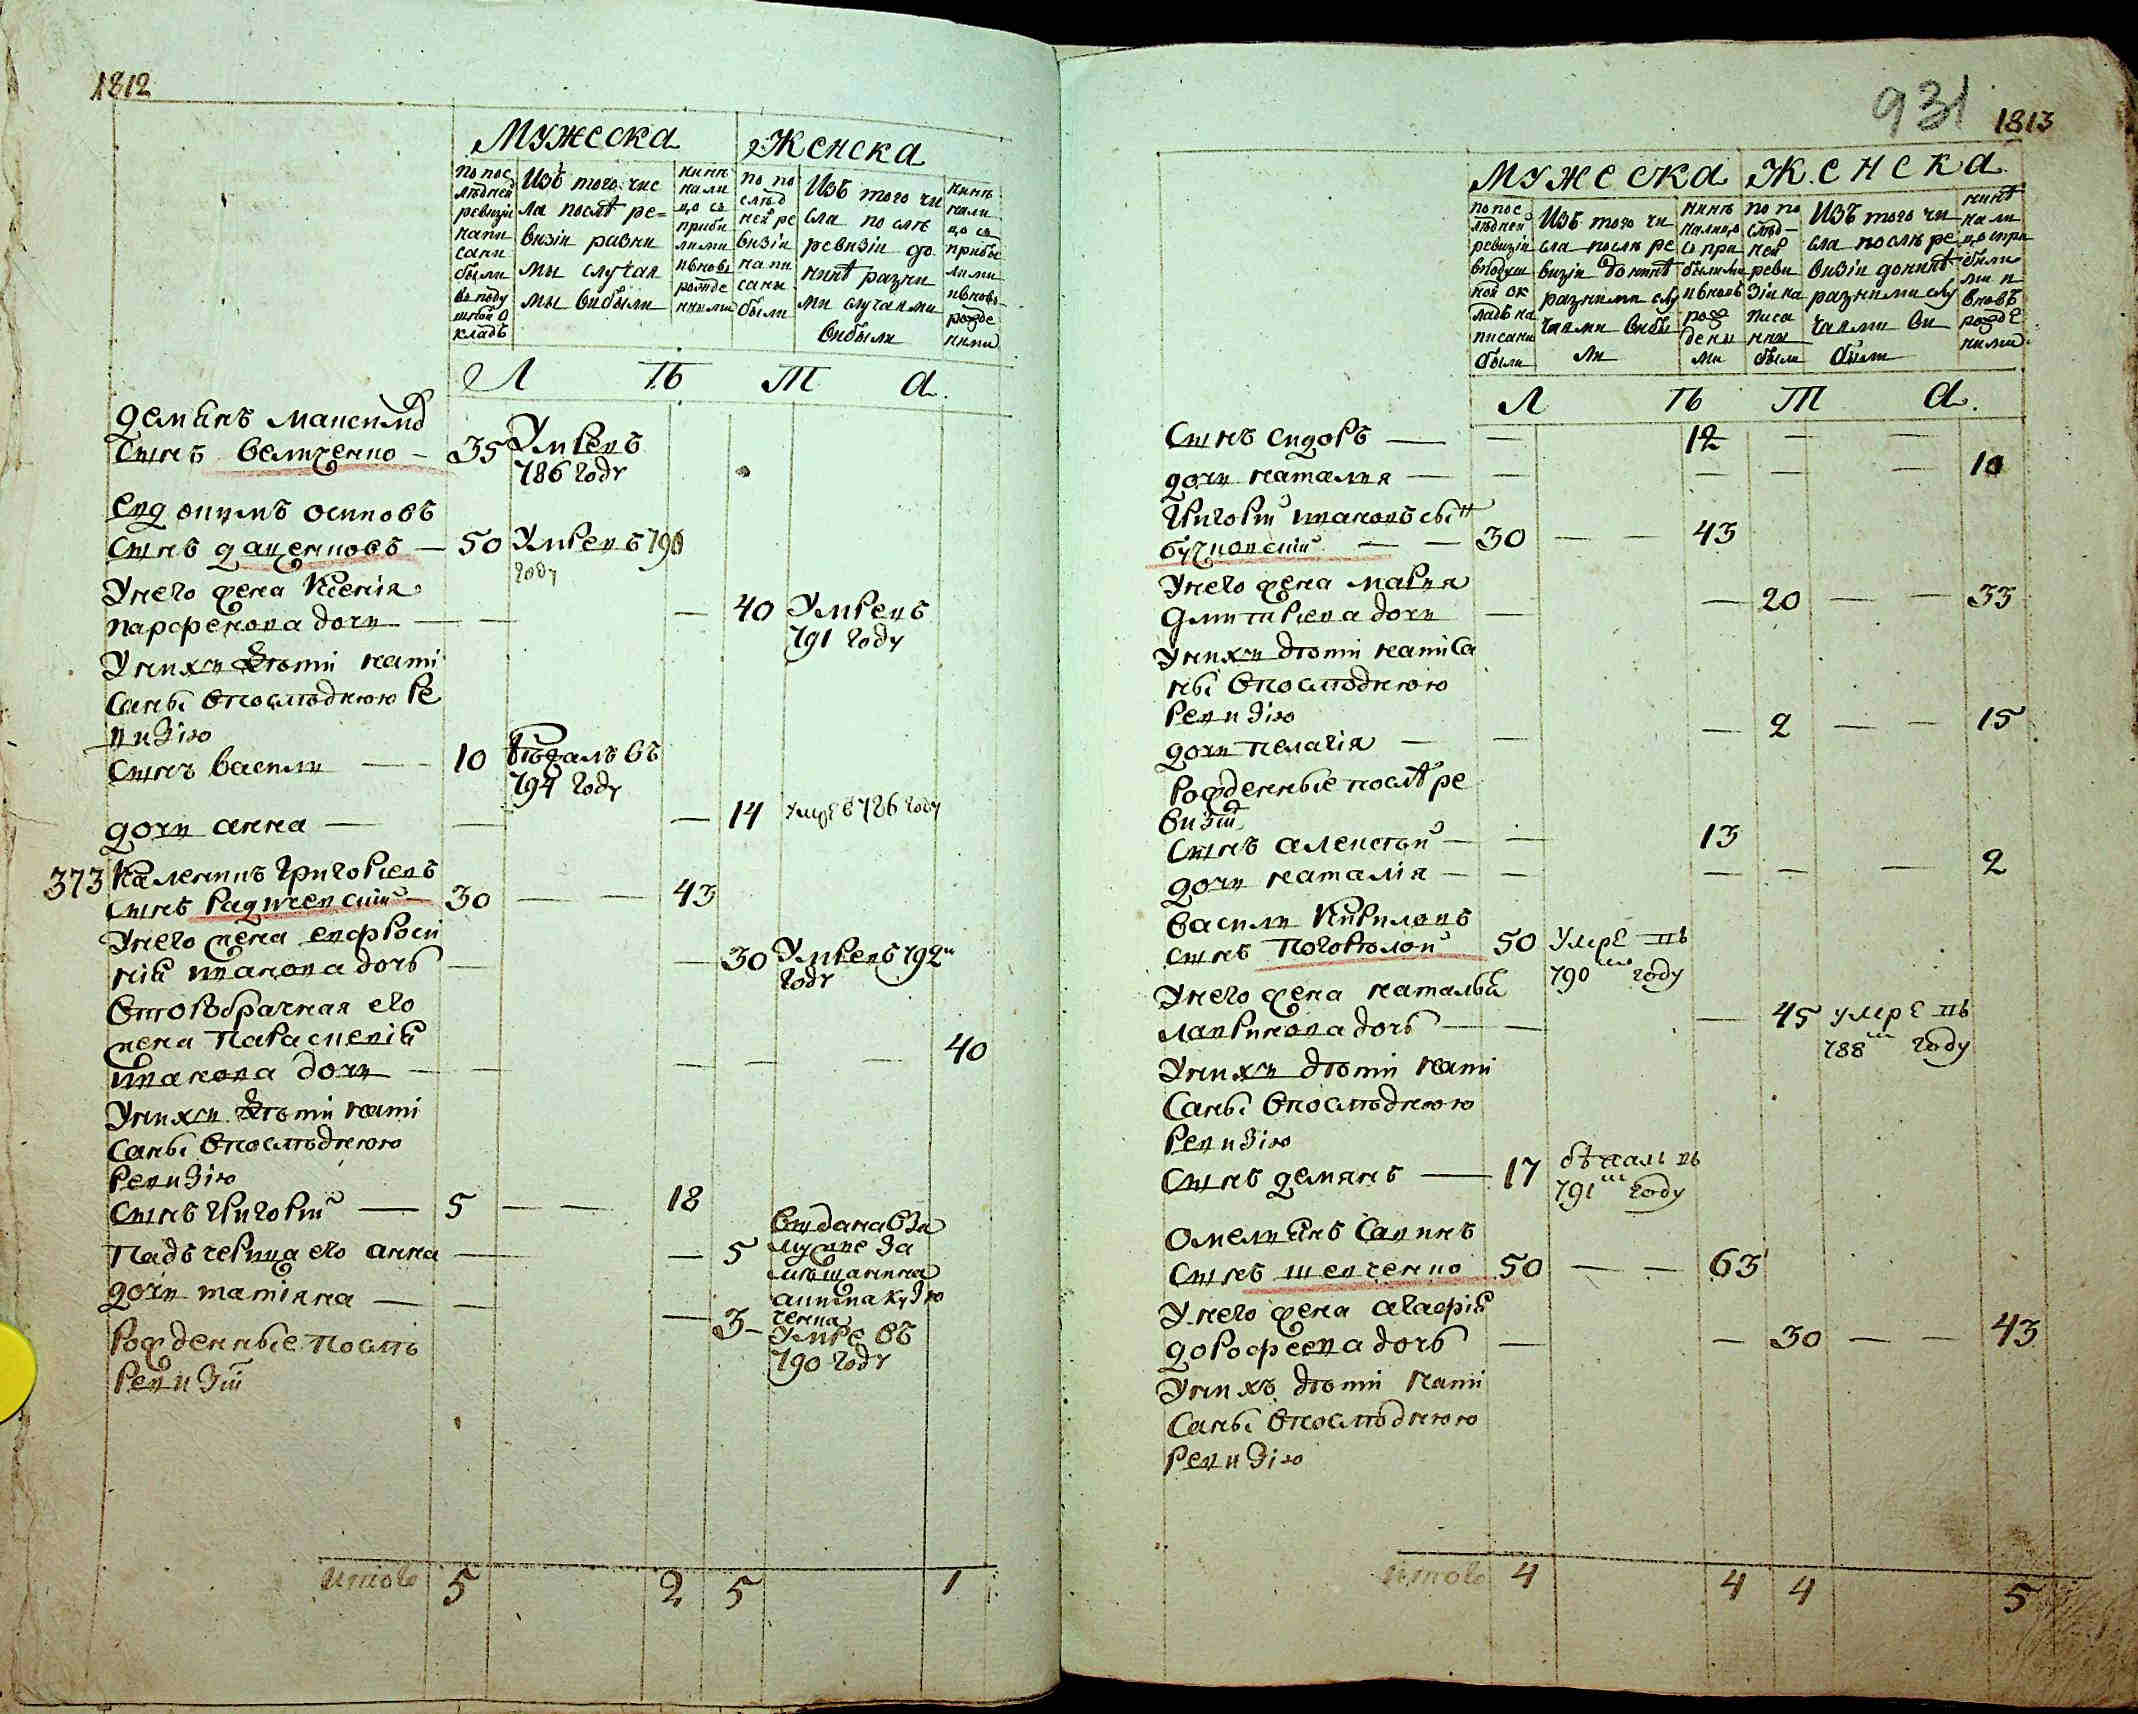 1812
Мужеска Женска
по пос
лѣдней
ревизіи
напи
саны
были
въ поду
шной о
кладъ
Изъ того чис
ла послѣ ре=
визіи разны
мы случая
мы выбыли
нынѣ
нали
цо съ
прибы
лыми
ивновь
рожде
нными
по по
слѣд
ней ре
визіи
напи
саны
были
Изъ того чи
сла по слѣ
ревизіи до
нинѣ разны
ми случаями
выбыли
нынѣ
нали
цо съ
прибы
лими
ивновь
рожде
ними
Л ѣ т а.
демянъ
сынъ величенко – 35 Умревъ
786 году
евдокимъ осиповъ
сынъ даценковъ — 50 Умревъ 790
году
Унего жена Ксенія
парфенова дочи — — — 40 Умревъ
791 году
Унихъ дѣти напі
саны впослѣднюю ре
визію
сынъ васили — 10 бѣжалъ въ
794 году
дочи анна — — — 14 умре в 786 году
373 Калениикъ Григориевъ
сынъ радзиевский – 30 — — 43
Унего жена евфроси
нія иванова дочь — — 30 Умревъ 792
году
второбрачная его
жена Параскевія
иванова дочи — — — — — 40
Унихъ дѣти напі
саны впослѣднюю
ревизію
сынъ григорий — 5 — — 18
Падъчерица его анна — — 5 выдана вза
мужие за
мѣщанина
дочи татіяна — — — 3 – Умре въ
790 году
Рожденные послѣ
ревизіи
итого 5 2 5 1
931
1813
Мужеска Женска.
по пос
лѣдней
ревизіи
вподуш
ной ок
ладъ на
писани
были
Изъ того чи
сла послѣ ре
визіи донинѣ
разними слу
чаями выбы
ли
нинѣ
налицо
с при
былими
ивновь
рож
дены
ми
по по
слѣд–
ней
реви
зіи на
писа
ны
были
Изъ того чи
сла послѣ ре
визіи донинѣ
разними слу
чаями ви
были
нинѣ
нали
цо спри
были
ми и
вновь
рожде
ними.
Л ѣ т а.
сынъ сидоръ — — 12 — —
дочи наталия — — — — — 10
Григорий ивановъ сын
бучковский — — 30 — — 43
Унего жена мария
дмитриева дочи — — 20 — — 33
Унихъ дѣти напіса
ны впослѣднюю
ревизію
дочи пелагія — — — 2 — — 15
Рожденные послѣ ре
визіи
сынъ алексѣй — — 13
дочи наталія — — — — — 2
васили Кириловъ
сынъ Погорѣлой 50 умре въ
790 году
Унего жена наталья
лаврикова дочь — — — 45 умре въ
788 году
Унихъ дѣти напи
саны впослѣднюю
ревизію
сынъ демянъ — 17 бѣжалъ въ
791 году
омелянъ савинъ
сынъ шевченко 50 — — 63
Унего жена агафія
дорофеева дочь — — 30 — — 43
Унихъ дѣти напи
саны впослѣднюю
ревизію
итого 4 4 4 5